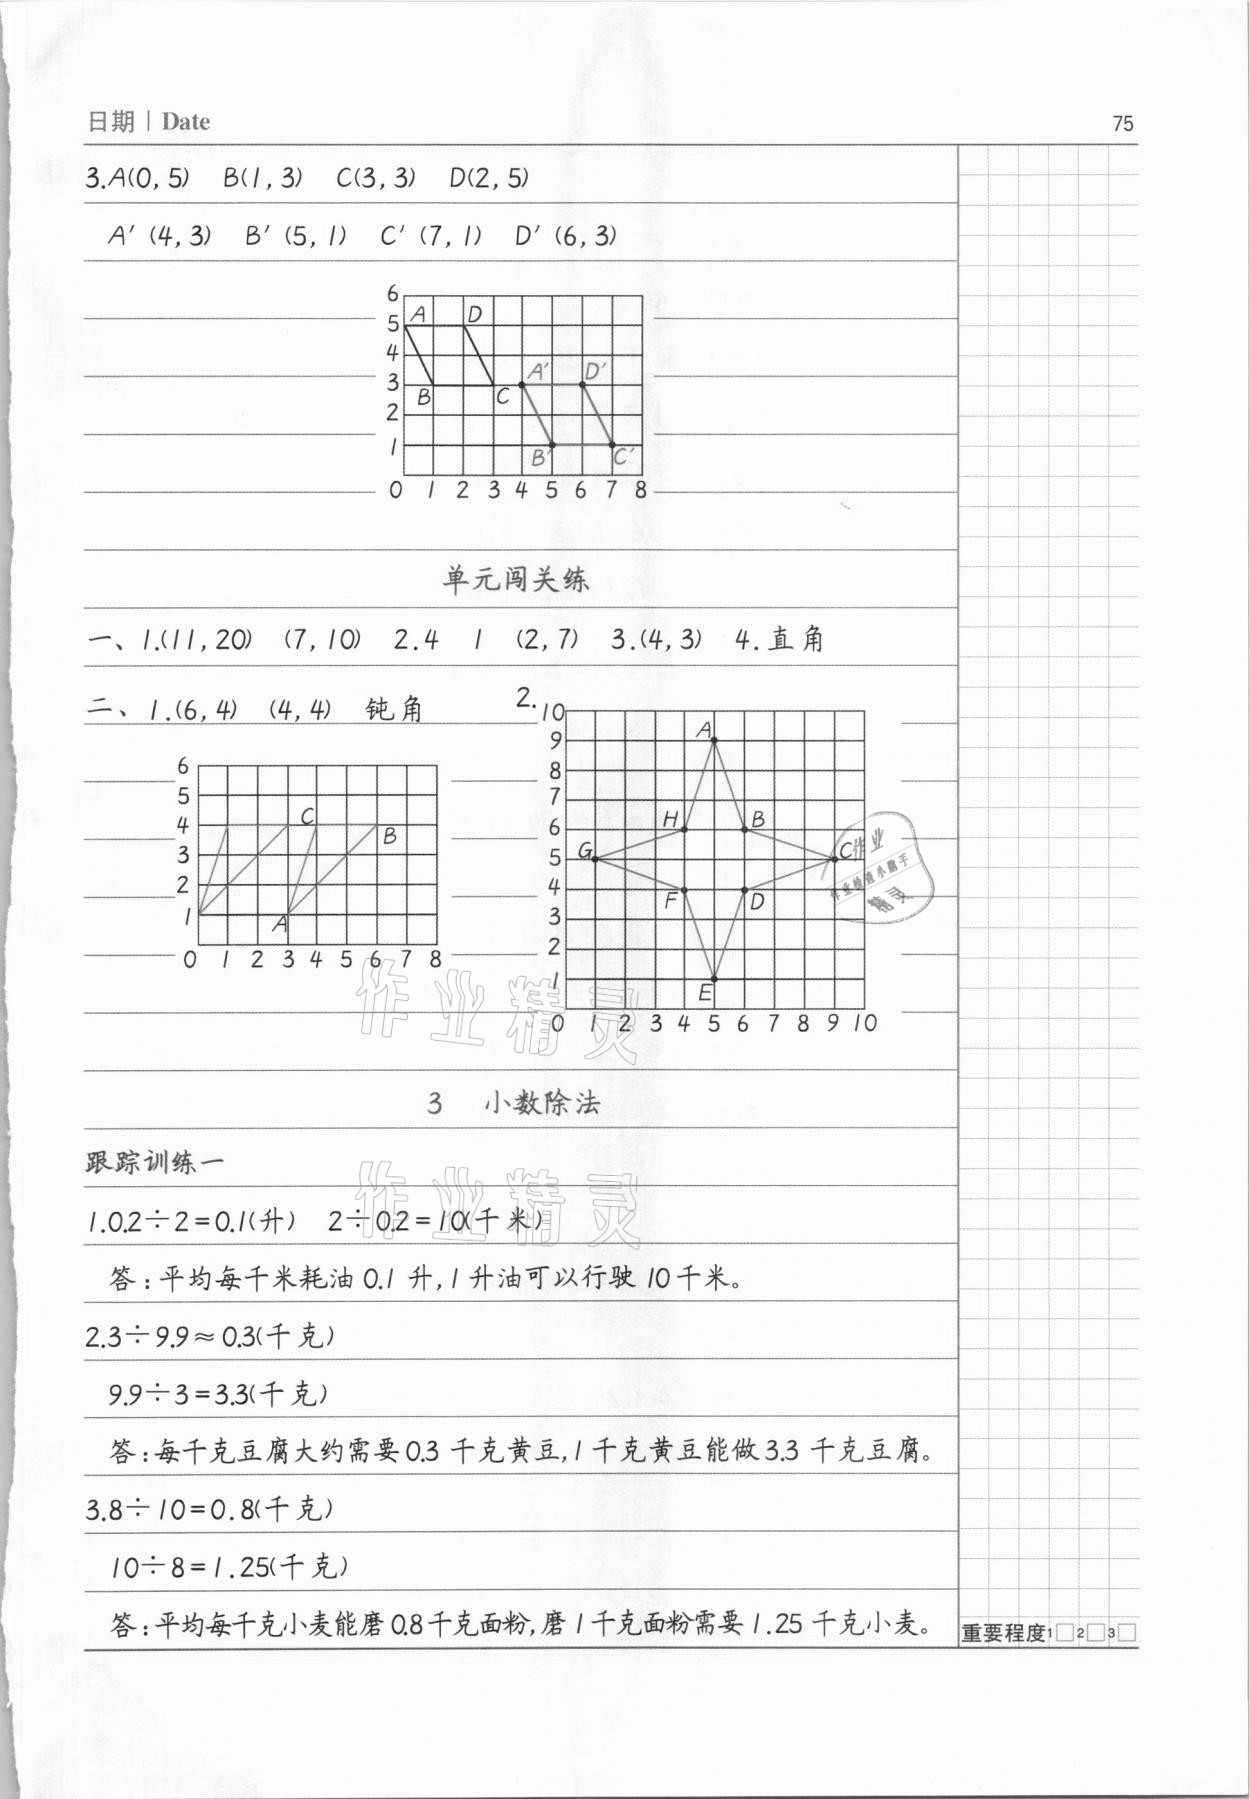 日期 | Date 75
3.A(0,5) B(1,3) C(3,3) D(2,5)
A′(4,3) B′(5,1) C′(7,1) D′(6,3)
6
5 A D
4
3 A′ D′
B C
2
1
B′ C′
0 1 2 3 4 5 6 7 8
单元闯关练
一、1.(11,20) (7,10) 2.4 1 (2,7) 3.(4,3) 4.直角
二、1.(6,4) (4,4) 钝角
6
5
4 C
B
3
2
1
A
0 1 2 3 4 5 6 7 8
2.
10
9 A
8
7
6 H B
5 G C
4
F D
3
2
1
E
0 1 2 3 4 5 6 7 8 9 10
作业
作业检查小助手
精灵
作业精灵
3 小数除法
跟踪训练一
作业精灵
1.0.2÷2=0.1(升) 2÷0.2=10(千米)
答:平均每千米耗油0.1升,1升油可以行驶10千米。
2.3÷9.9≈0.3(千克)
9.9÷3=3.3(千克)
答:每千克豆腐大约需要0.3千克黄豆,1千克黄豆能做3.3千克豆腐。
3.8÷10=0.8(千克)
10÷8=1.25(千克)
答:平均每千克小麦能磨0.8千克面粉,磨1千克面粉需要1.25千克小麦。
重要程度1□2□3□